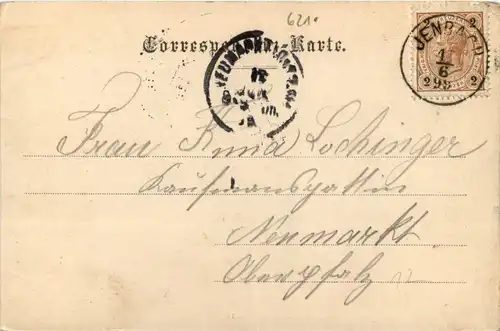 621.
Correspondenz-Karte.
2 2
JENBACH
1/6
2 98 2
NEUMARKT
Frau Anna Lochinger
Kaufmannsgattin
Neumarkt
Oberpfalz